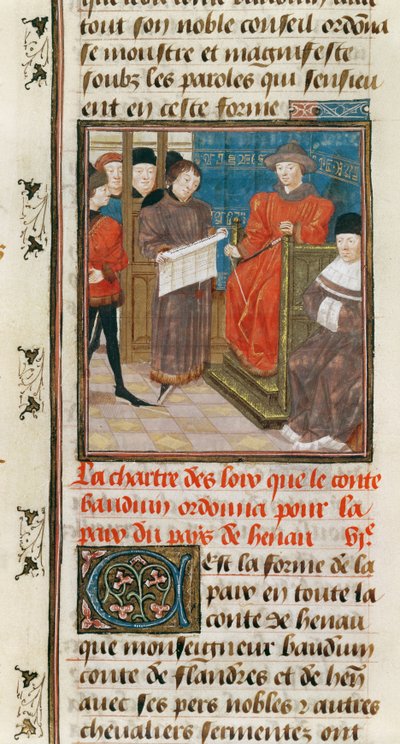 tout son noble conseil ordōna
se monstre et magnifeste
soubz les paroles qui sensieu
ent en ceste forme
La chartre des loix que le conte
bauduin ordonna pour la
paix du pays de henau VIᵉ
Cest la forme de la
paix en toute la
conte de henau
que monseigneur bauduin
conte de flandres et de hēn
avec ses pers nobles 2 autres
chevaliers sermentez ont